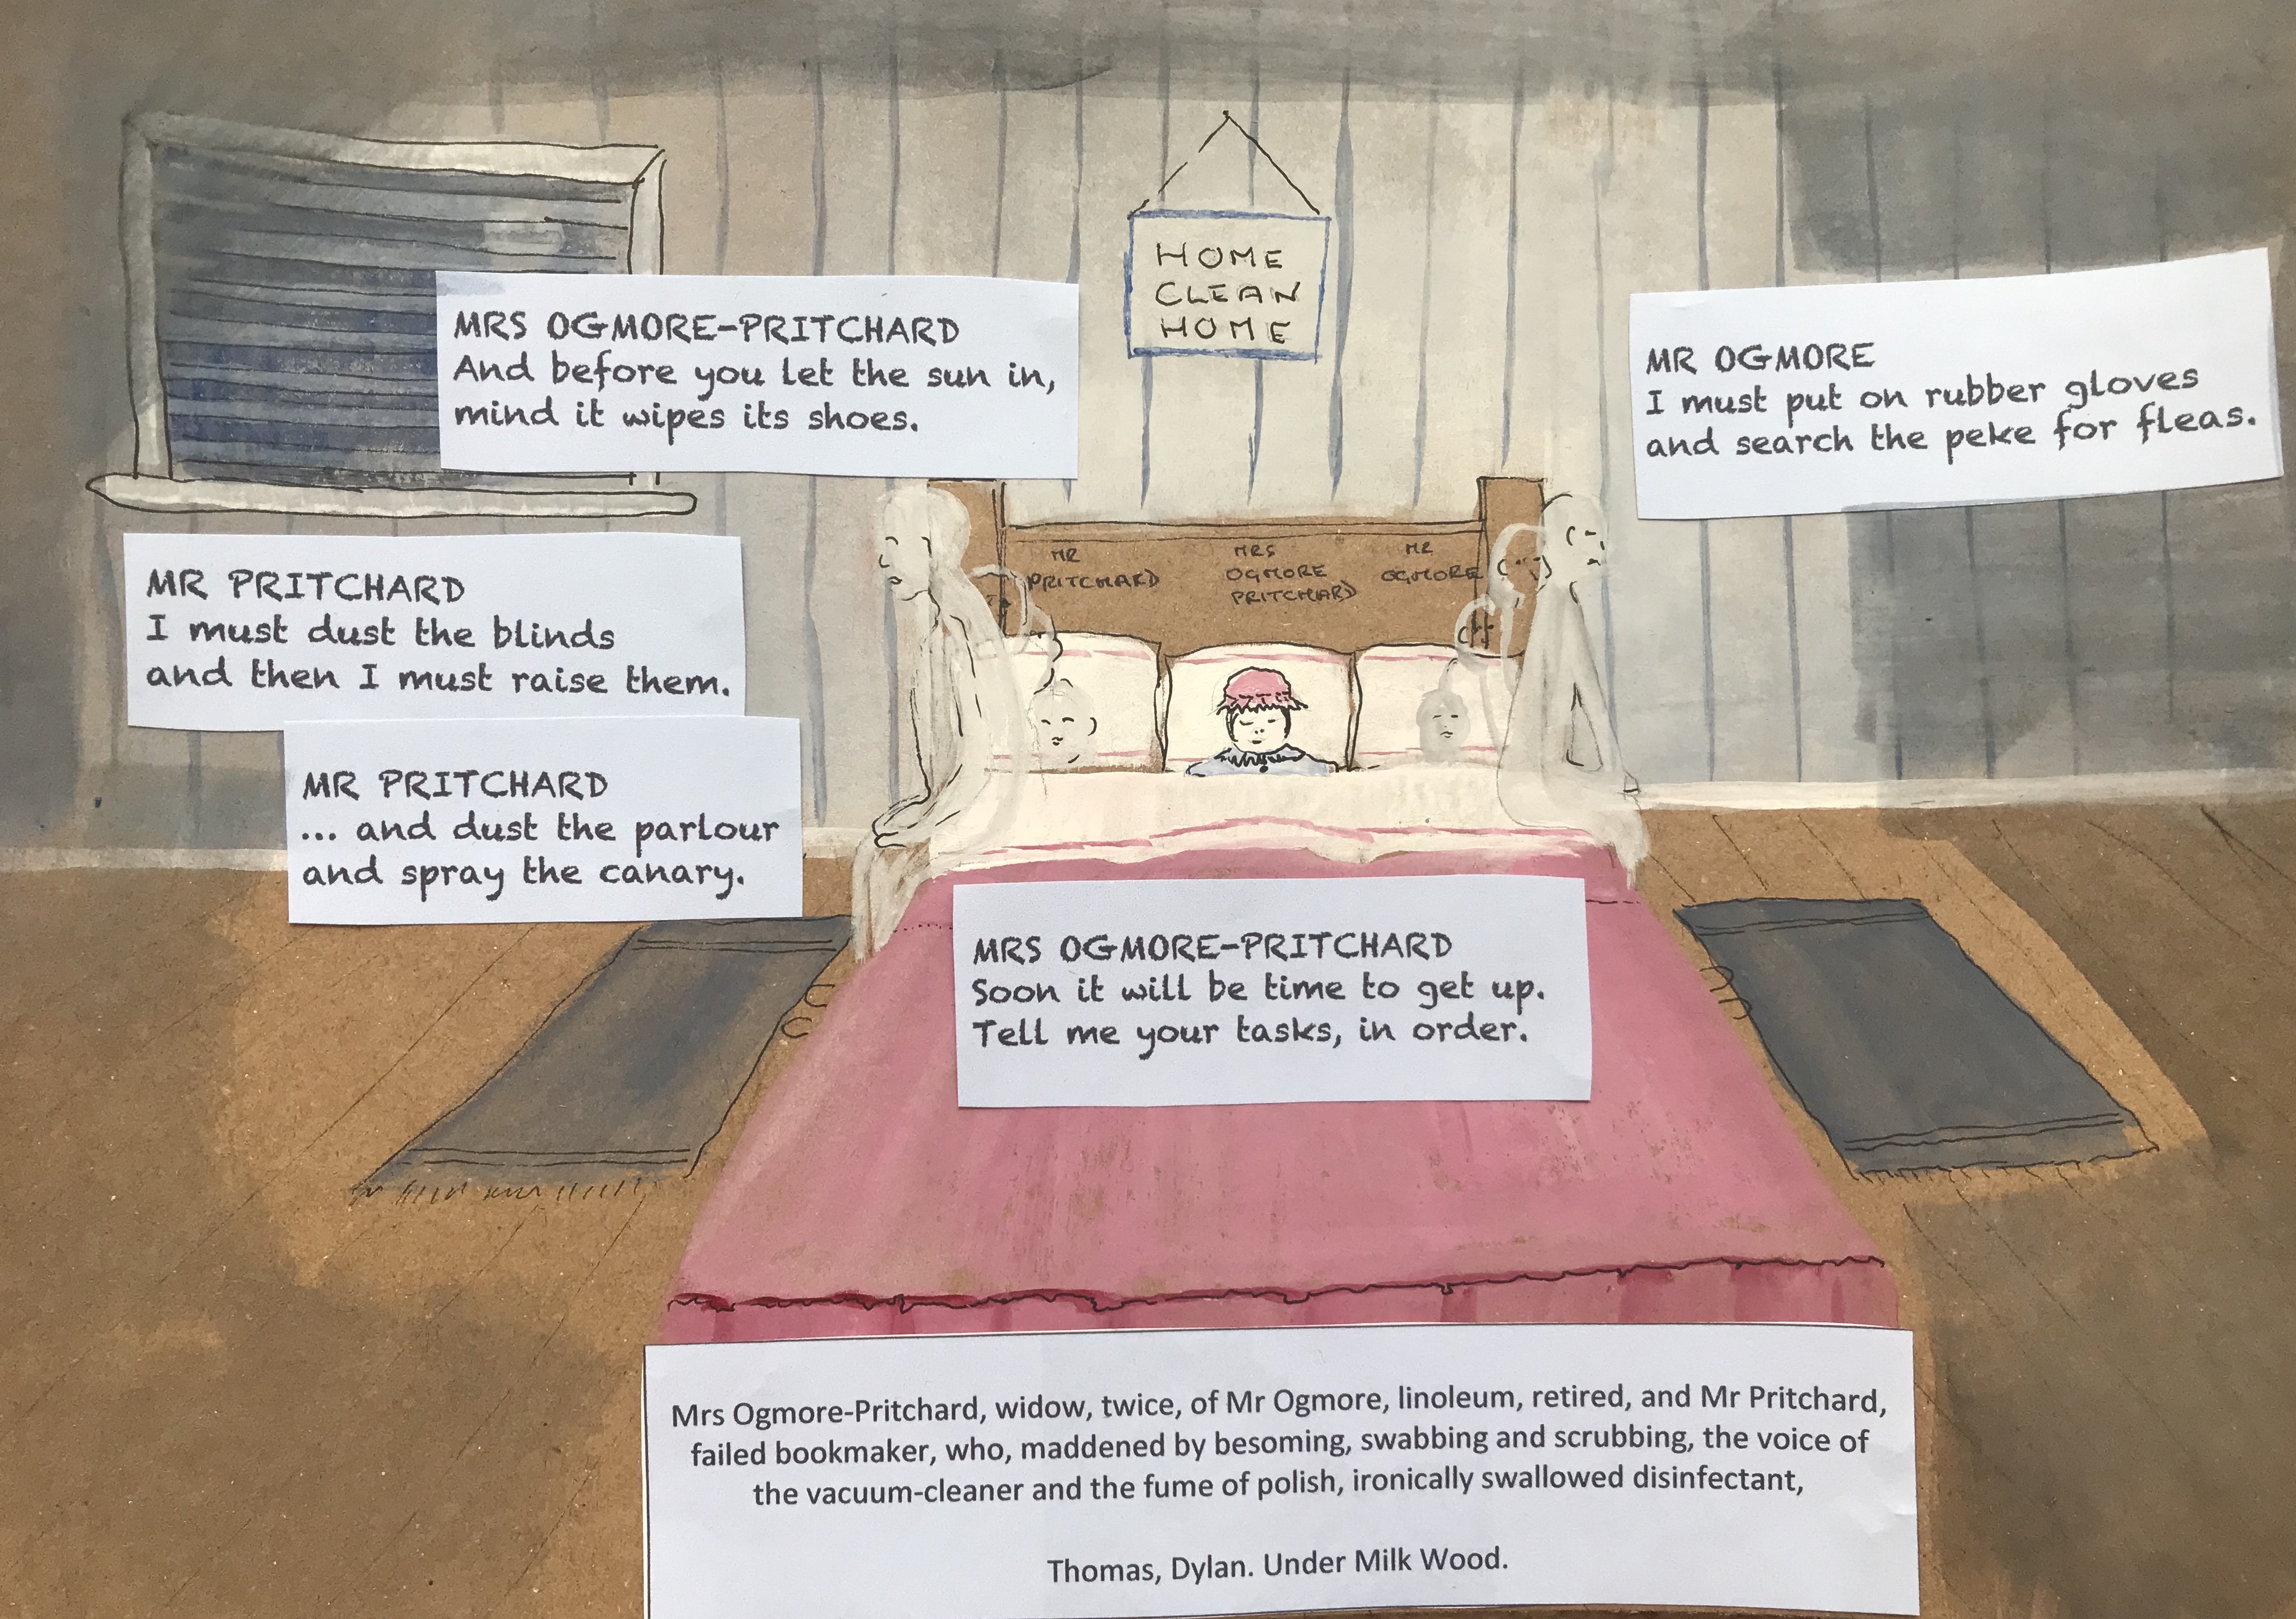 HOME
CLEAN
HOME
MRS OGMORE-PRITCHARD
And before you let the sun in,
mind it wipes its shoes.
MR OGMORE
I must put on rubber gloves
and search the peke for fleas.
MR PRITCHARD
I must dust the blinds
and then I must raise them.
MR PRITCHARD
... and dust the parlour
and spray the canary.
MR
PRITCHARD
MRS
OGMORE
PRITCHARD
MR
OGMORE
MRS OGMORE-PRITCHARD
Soon it will be time to get up.
Tell me your tasks, in order.
Mrs Ogmore-Pritchard, widow, twice, of Mr Ogmore, linoleum, retired, and Mr Pritchard,
failed bookmaker, who, maddened by besoming, swabbing and scrubbing, the voice of
the vacuum-cleaner and the fume of polish, ironically swallowed disinfectant,
Thomas, Dylan. Under Milk Wood.